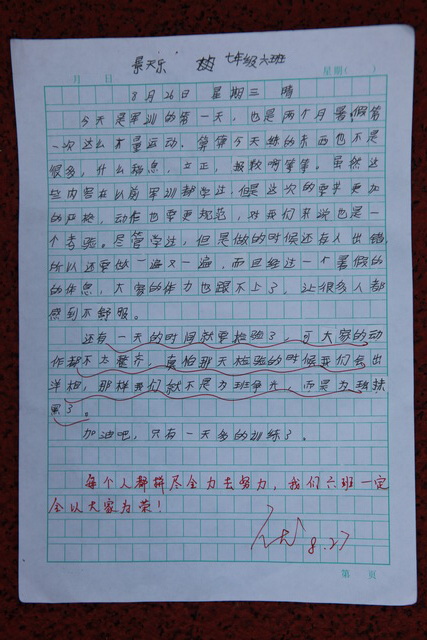 景天乐 七年级六班
月 日 星期( )
8月26日 星期三 晴
今天是军训的第一天，也是两个月暑假第
一次这么大量运动。第第今天练的东西也不是
很多，什么稍息，立正，报数啊等等。虽然这
些内容在以前军训都学过，但是这次的要求更加
的严格，动作也要更规范，对我们来说也是一
个考验。尽管学过，但是做的时候还有人出错，
所以还要做一遍又一遍，而且经过一个暑假的
的休息，大家的体力也跟不上了。让很多人都
感到不舒服。
还有一天的时间就要检验了，可大家的动
作都不太整齐，真怕那天检验的时候我们会出
洋相，那样我们就不是为班争光，而是为班抹
黑了。
加油吧，只有一天多的训练了。
每个人都拼尽全力去努力，我们六班一定
会以大家为荣！
8.27
第 页